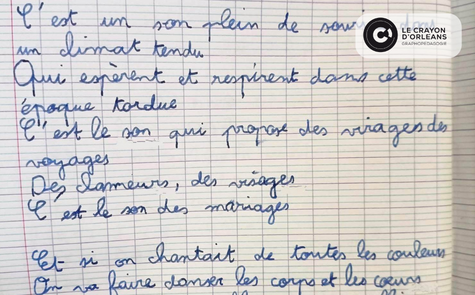 C'est un son plein de
un climat tendu
Qui espèrent et respirent dans cette
époque tordue
C'est le son qui propose des virages des
voyages
Des clameurs, des visages
C'est le son des mariages
Et si on chantait de toutes les couleurs
On va faire danser les corps et les cœurs
LE CRAYON
D'ORLEANS
GRAPHOPEDAGOGIE